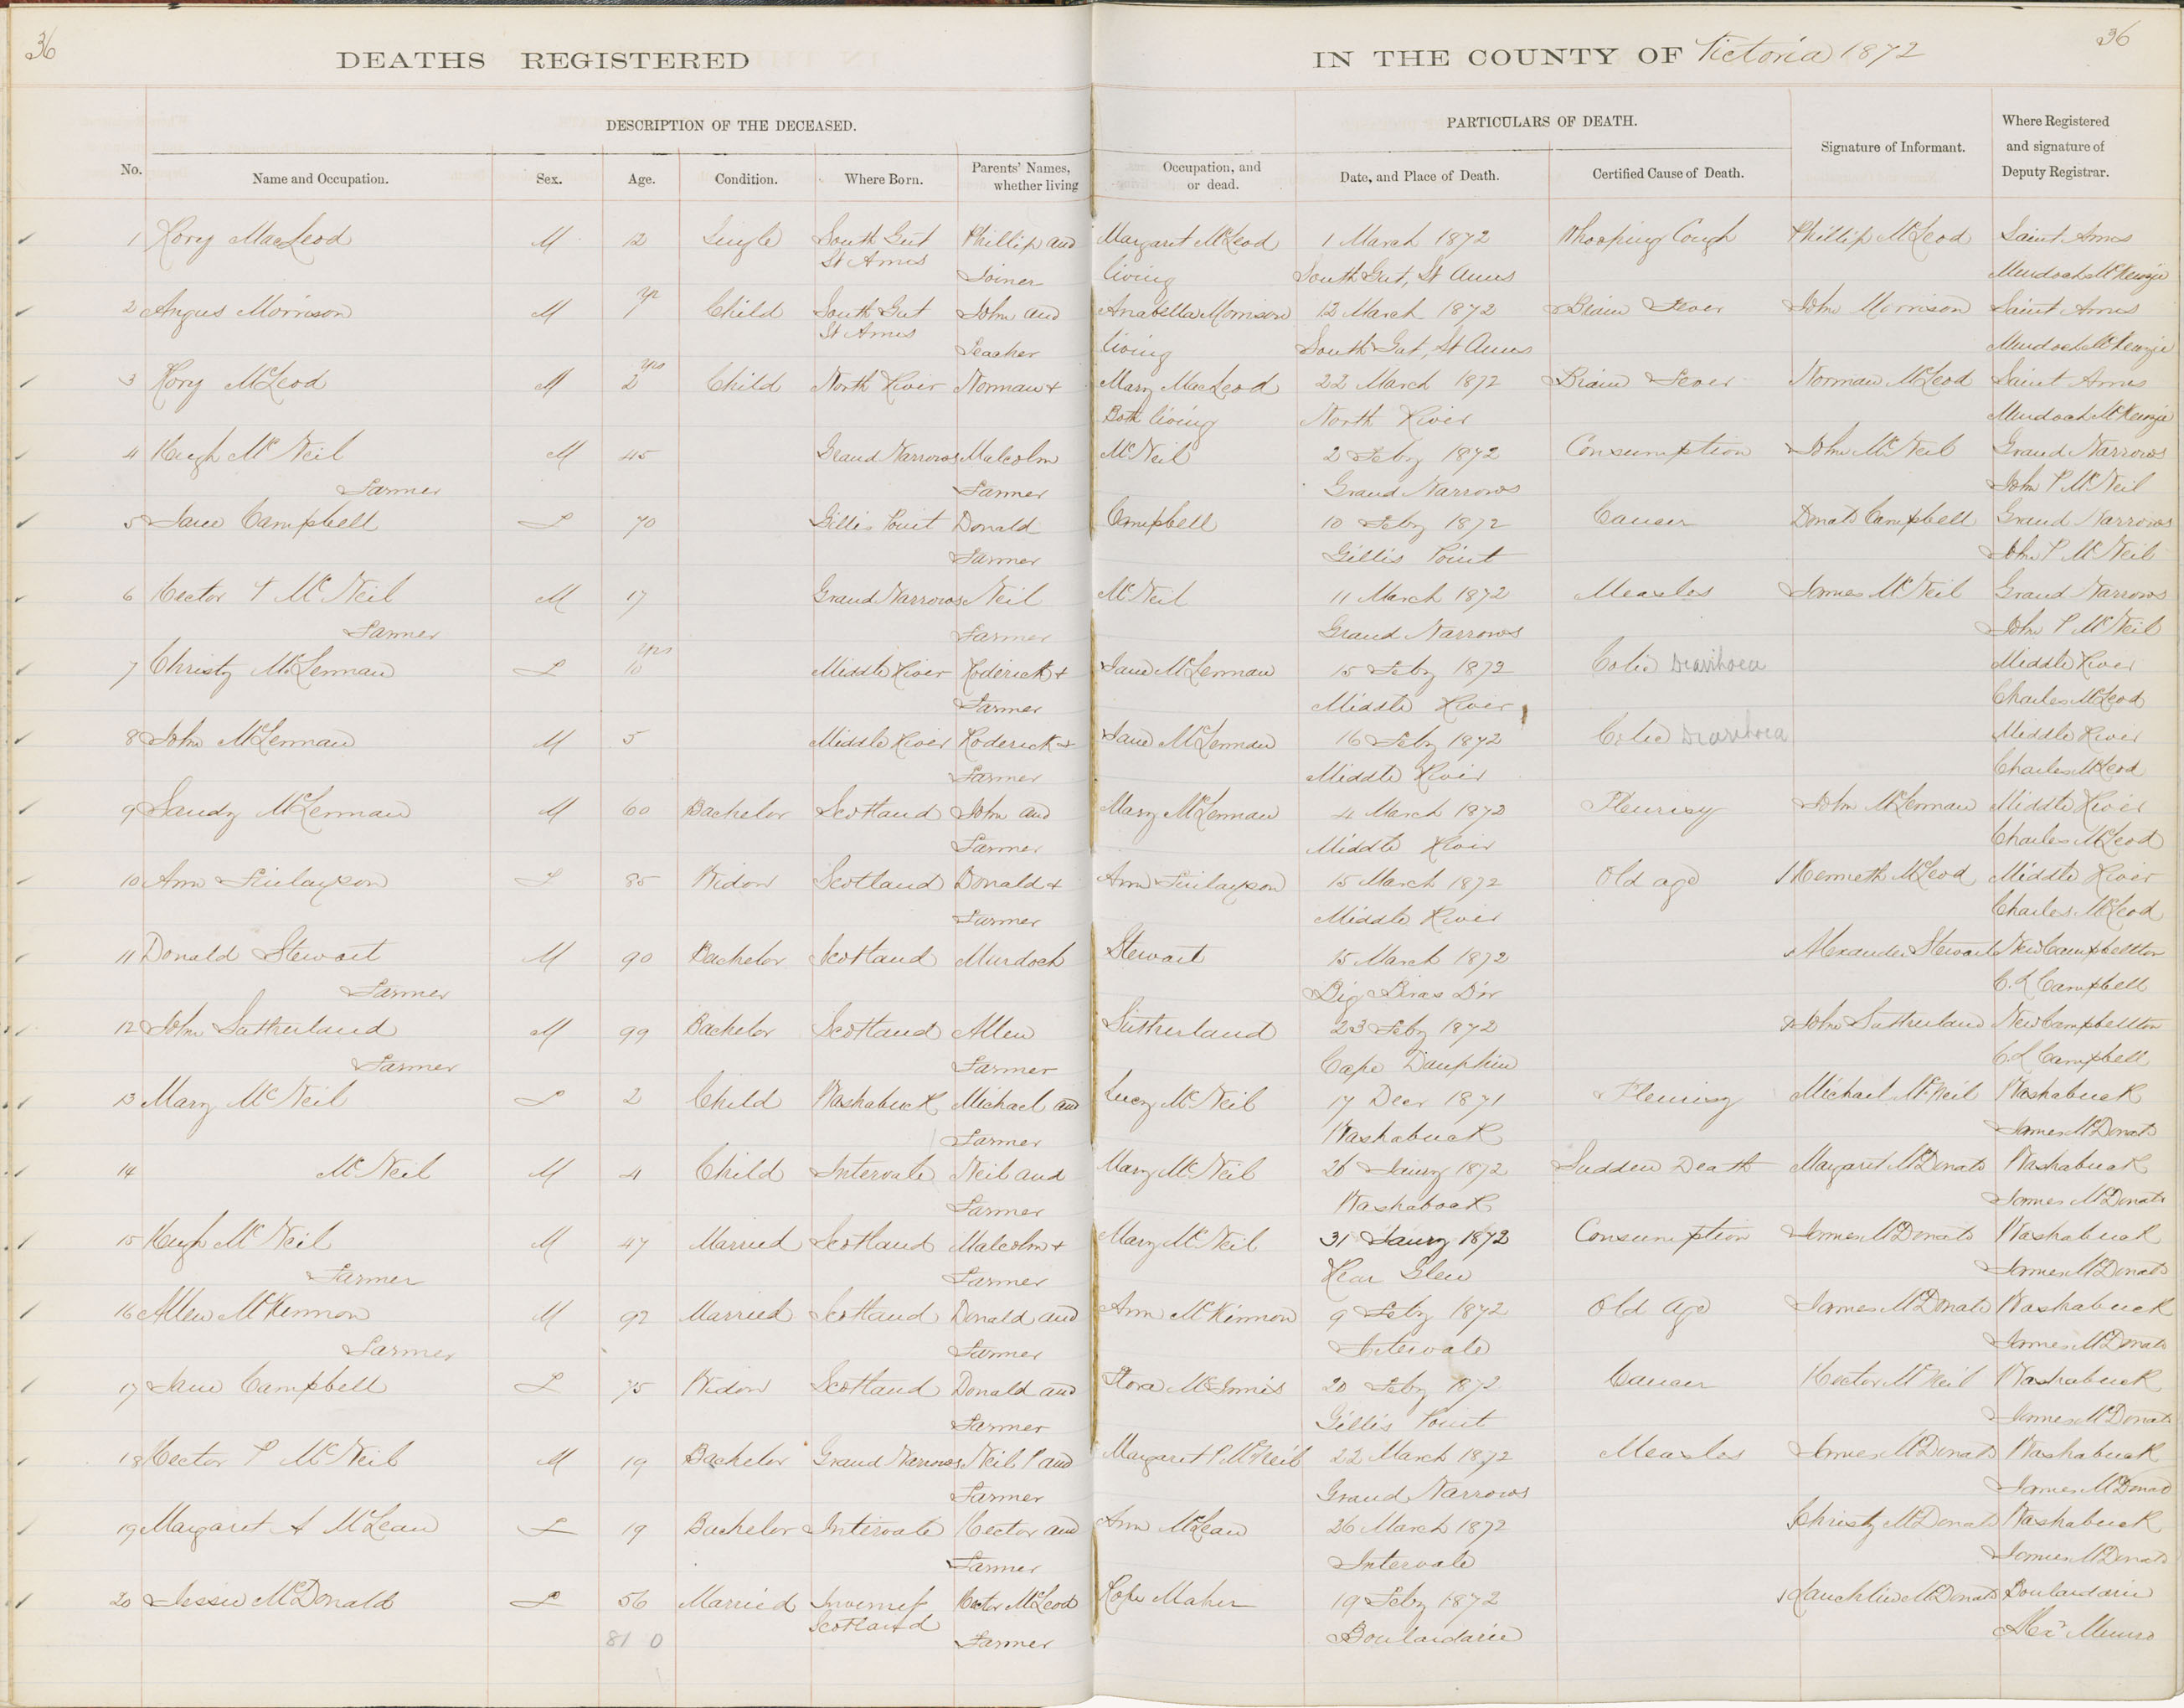 36
36
DEATHS REGISTERED IN THE COUNTY OF Victoria 1872
DESCRIPTION OF THE DECEASED. PARTICULARS OF DEATH.
No. Name and Occupation. Sex. Age. Condition. Where Born. Parents' Names, whether living Occupation, and or dead. Date, and Place of Death. Certified Cause of Death. Signature of Informant. Where Registered and signature of Deputy Registrar.
1 Rory MacLeod M 12 Single South Gut Phillip and Margaret McLeod 1 March 1872 Whooping Cough Phillip McLeod Saint Anns
St Anns Joiner living South Gut, St Anns Murdoch McKenzie
2 Angus Morrison M Child South Gut John and Anabella Morrison 12 March 1872 Brain Fever John Morrison Saint Anns
St Anns Teacher living South Gut, St Anns Murdoch McKenzie
3 Rory McLeod M 2 yrs Child North River Norman + Mary MacLeod 22 March 1872 Brain Fever Norman McLeod Saint Anns
Both living North River Murdoch McKenzie
4 Hugh McNeil M 45 Grand Narrows Malcolm McNeil 2 Feby 1872 Consumption John McNeil Grand Narrows
Farmer Farmer Grand Narrows John P McNeil
5 Jane Campbell F 70 Gillis Point Donald Campbell 10 Feby 1872 Cancer Donald Campbell Grand Narrows
Farmer Gillis Point John P McNeil
6 Hector McNeil M 17 Grand Narrows Neil McNeil 11 March 1872 Measles James McNeil Grand Narrows
Farmer Farmer Grand Narrows John P McNeil
7 Christy McLennan F 10 yrs Middle River Roderick + Jane McLennan 15 Feby 1872 Colic Diarrhoea Middle River
Farmer Middle River Charles McLeod
8 John McLennan M 5 Middle River Roderick + Jane McLennan 16 Feby 1872 Colic Diarrhoea Middle River
Farmer Middle River Charles McLeod
9 Sandy McLennan M 60 Bachelor Scotland John and Mary McLennan 4 March 1872 Pleurisy John McLennan Middle River
Farmer Middle River Charles McLeod
10 Ann Finlayson F 85 Widow Scotland Donald + Ann Finlayson 15 March 1872 Old age Kenneth McLeod Middle River
Farmer Middle River Charles McLeod
11 Donald Stewart M 90 Bachelor Scotland Murdoch Stewart 15 March 1872 Alexander Stewart New Campbellton
Farmer Big Bras D'or C. L Campbell
12 John Sutherland M 99 Bachelor Scotland Allen Sutherland 23 Feby 1872 John Sutherland New Campbellton
Farmer Farmer Cape Dauphin C. L Campbell
13 Mary McNeil F 2 Child Washabuck Michael and Lucy McNeil 17 Decr 1871 Pleurisy Michael McNeil Washabuck
Farmer Washabuck James McDonald
14 McNeil M 4 Child Intervale Neil and Mary McNeil 26 Jauny 1872 Sudden Death Margaret McDonald Washabuck
Farmer Washaboak James McDonald
15 Hugh McNeil M 47 Married Scotland Malcolm + Mary McNeil 31 Jauny 1872 Consumption James McDonald Washabuck
Farmer Farmer Rear Glen James McDonald
16 Allen McKinnon M 92 Married Scotland Donald and Ann McKinnon 9 Feby 1872 Old Age James McDonald Washabuck
Farmer Farmer Intervale James McDonald
17 Jane Campbell F 75 Widow Scotland Donald and Flora McInnis 20 Feby 1872 Cancer Hector McNeil Washabuck
Farmer Gillis Point James McDonald
18 Hector P McNeil M 19 Bachelor Grand Narrows Neil P and Margaret P McNeil 22 March 1872 Measles James McDonald Washabuck
Farmer Grand Narrows James McDonald
19 Margaret A McLean F 19 Bachelor Intervale Hector and Ann McLean 26 March 1872 Christy McDonald Washabuck
Farmer Intervale James McDonald
20 Jessie McDonald F 56 Married Inverness Hector McLeod 19 Feby 1872 Lauchlin McDonald Boulardarie
81 0 Scotland Farmer Boulardarie Alexr Munro